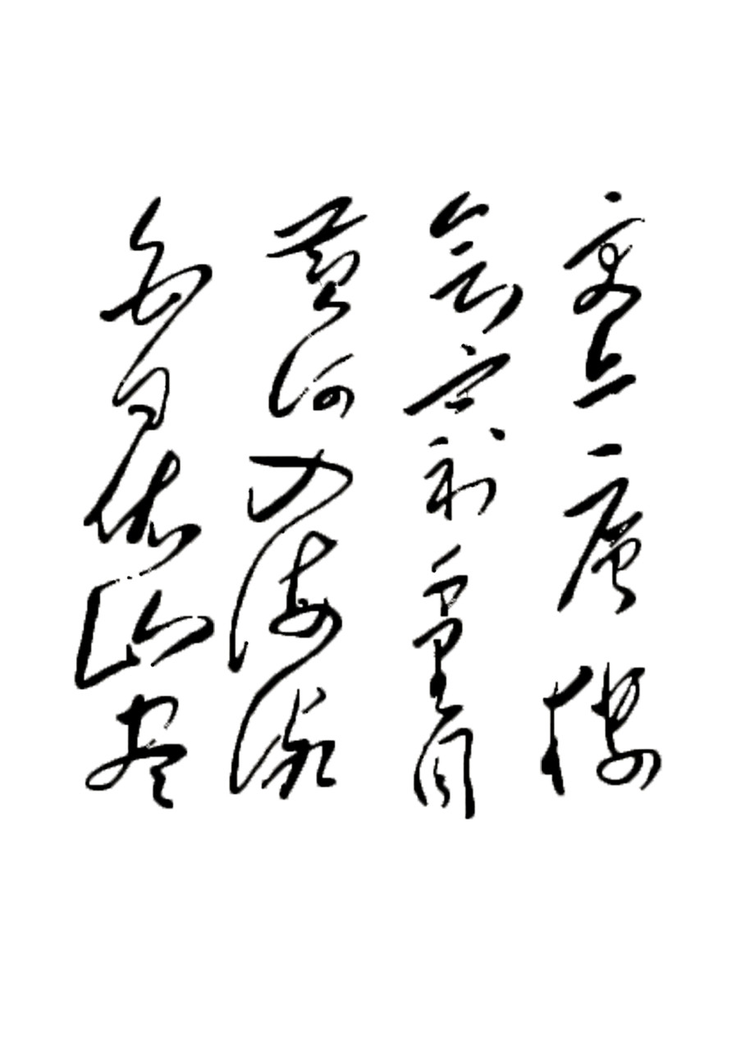 白日依山尽
黄河入海流
欲穷千里目
更上一层楼